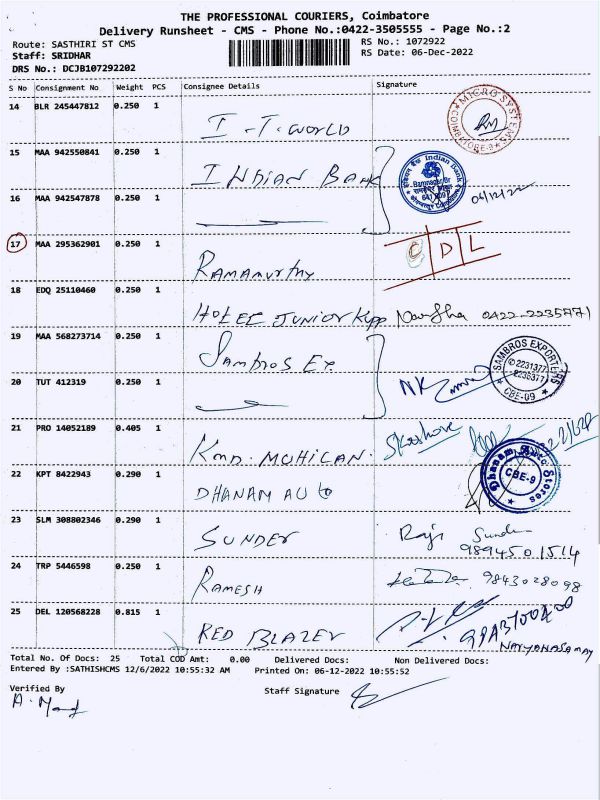 THE PROFESSIONAL COURIERS, Coimbatore
Delivery Runsheet - CMS - Phone No.:0422-3505555 - Page No.:2
Route: SASTHIRI ST CMS
RS No.: 1072922
Staff: SRIDHAR
RS Date: 06-Dec-2022
DRS No.: DCJB107292202
S No Consignment No Weight PCS Consignee Details Signature
14 BLR 245447812 0.250 1
I-T-WORLD
MICRO SYSTEMS COIMBATORE-9
15 MAA 942550841 0.250 1
INDIAN BANK
Indian Bank
Ramnagar Br
641 009
16 MAA 942547878 0.250 1
04/12/22
17 MAA 295362901 0.250 1
RAMAMURTHY
C D L
18 EDQ 25110460 0.250 1
HOTEL JUNIOR KUPP 0422-2235771
19 MAA 568273714 0.250 1
SAMBROS EX.
SAMBROS EXPORTERS
2231377
2236377
CBE-09
20 TUT 412319 0.250 1
NK
21 PRO 14052189 0.405 1
KMD. MUHILAN.
22 KPT 8422943 0.290 1
DHANAM AUTO
Dhanam Auto Stores
CBE-9
23 SLM 308802346 0.290 1
SUNDER
Raji
9894501514
24 TRP 5446598 0.250 1
RAMESH
9843028098
25 DEL 120568228 0.815 1
RED BLAZER
NARYANASAMAY
Total No. Of Docs: 25 Total COD Amt: 0.00 Delivered Docs: Non Delivered Docs:
Entered By :SATHISHCMS 12/6/2022 10:55:32 AM Printed On: 06-12-2022 10:55:52
Verified By
Staff Signature